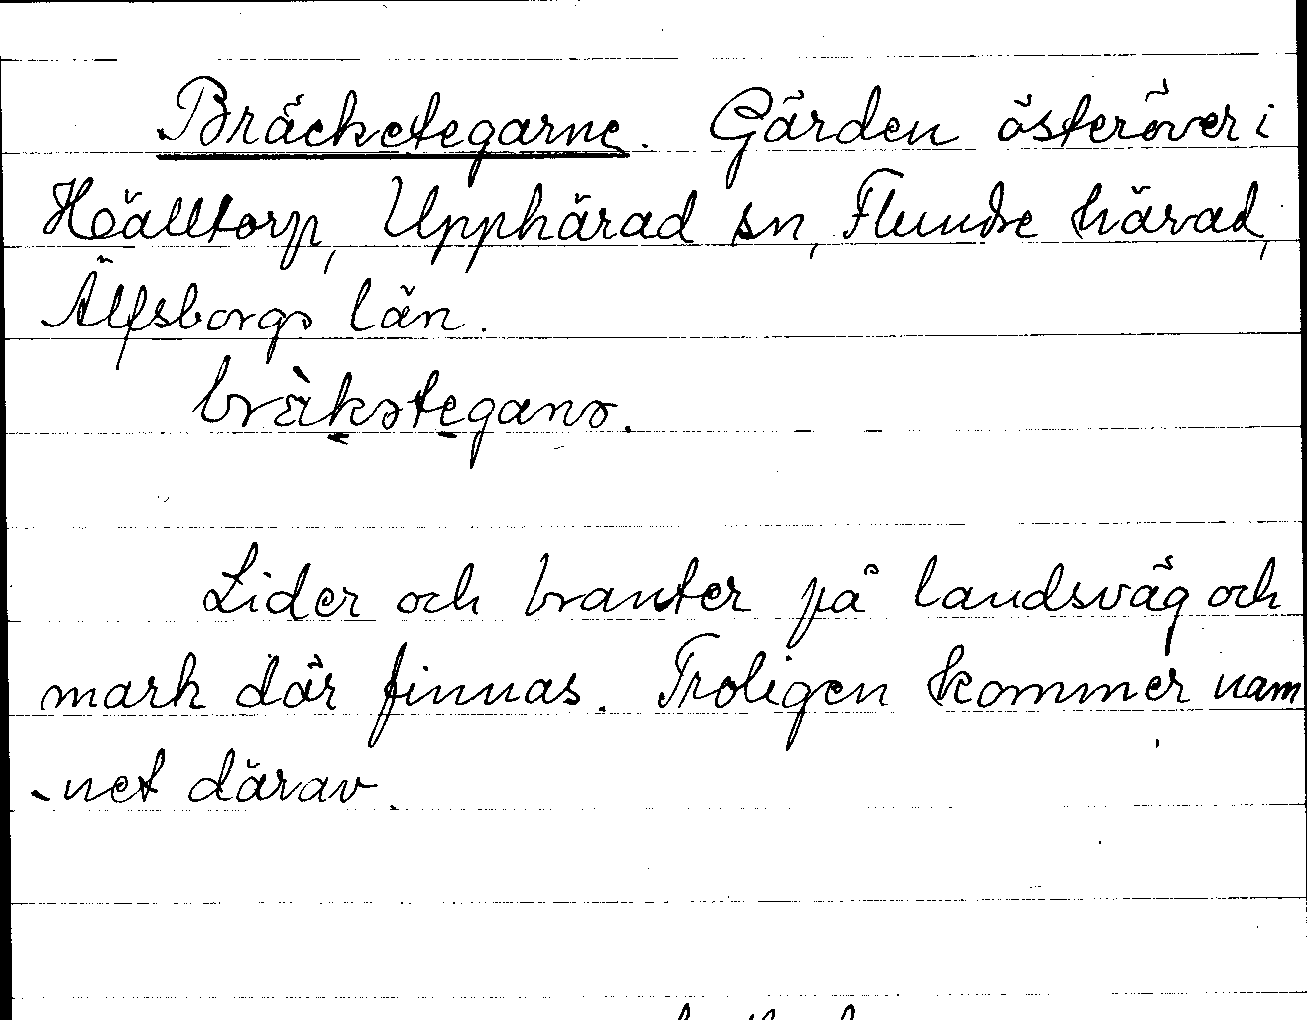 Bräcketegarne. Gärden österöver i
Hälltorp, Upphärad sn, Flundre härad,
Älfsborgs län.
bräkəteganə.
Lider och branter på landsväg och
mark där finnas. Troligen kommer nam
-net därav.